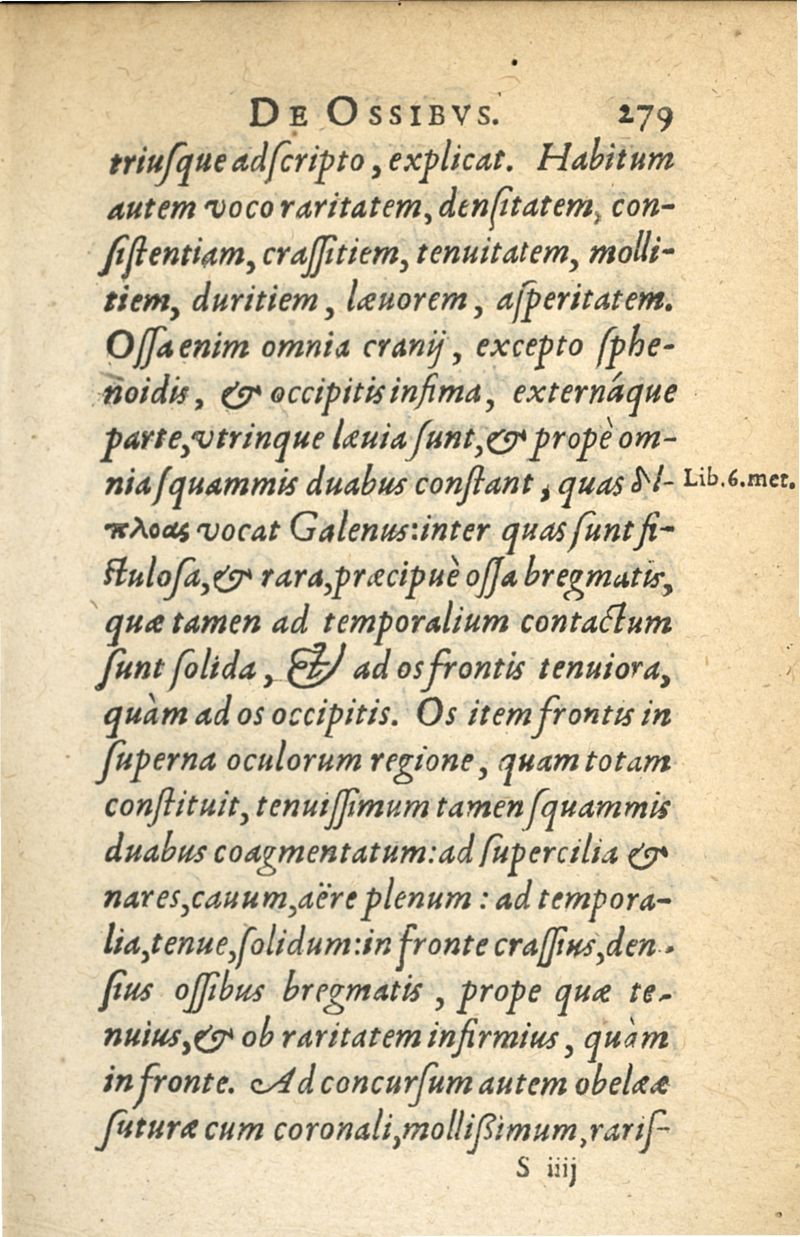 DE OSSIBVS. 279
triuſque adſcripto, explicat. Habitum
autem voco raritatem, denſitatem, con-
ſiſtentiam, craſſitiem, tenuitatem, molli-
tiem, duritiem, læuorem, aſperitatem.
Oſſa enim omnia cranij, excepto ſphe-
noidis, & occipitis infima, externáque
parte, vtrinque læuia ſunt, & propè om-
nia ſquammis duabus conſtant, quas δι- Lib.6.met.
πλοας vocat Galenus: inter quas ſunt fi-
ſtuloſa, & rara, præcipuè oſſa bregmatis,
quæ tamen ad temporalium contactum
ſunt ſolida, & ad os frontis tenuiora,
quàm ad os occipitis. Os item frontis in
ſuperna oculorum regione, quam totam
conſtituit, tenuiſſimum tamen ſquammis
duabus coagmentatum: ad ſupercilia &
nares, cauum, aëre plenum: ad tempora-
lia, tenue, ſolidum: in fronte craſſius, den-
ſius oſſibus bregmatis, prope quæ te-
nuius, & ob raritatem infirmius, quàm
in fronte. Ad concurſum autem obelææ
ſuturæ cum coronali, molliſsimum, rariſ-
S iiij